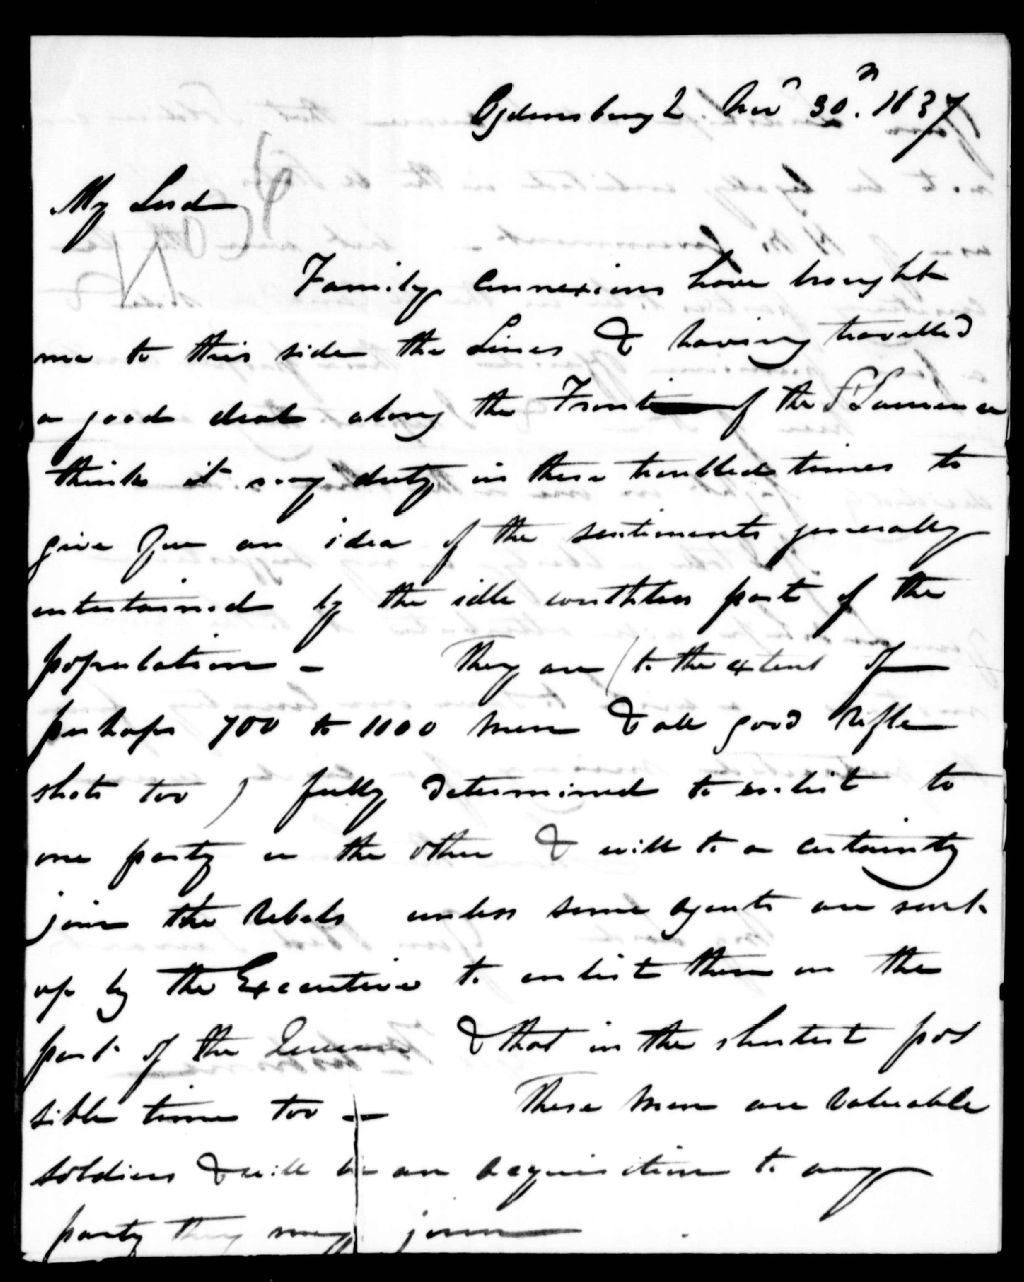 Ogdensburgh Nov 30th. 1837
My Lord
Family Connexions have brought
me to this side the Lines & having travelled
a good deal along the Front of the St Lawrence
think it my duty in these troubled times to
give you an idea of the sentiments generally
entertained by the idle worthless part of the
population - They are (to the extent of
perhaps 700 to 1000 men & all good Rifle
shots too) fully determined to enlist to
one party or the other & will to a certainty
join the Rebels unless some agents are sent
up by the Executive to enlist them on the
part of the Queen & that in the shortest pos
sible time too - These men are valuable
soldiers & will be an acquisition to any
party they may join